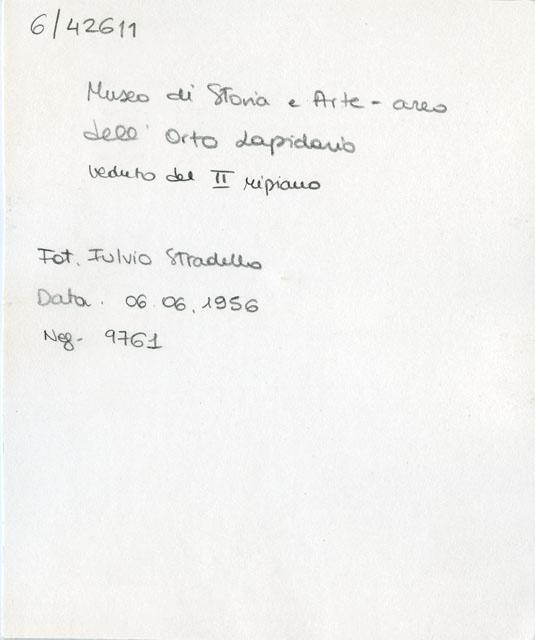 6/42611
Museo di Storia e Arte - area
dell' Orto Lapidario
veduta del II ripiano
Fot. Fulvio Stradella
Data. 06.06.1956
Neg. 9761